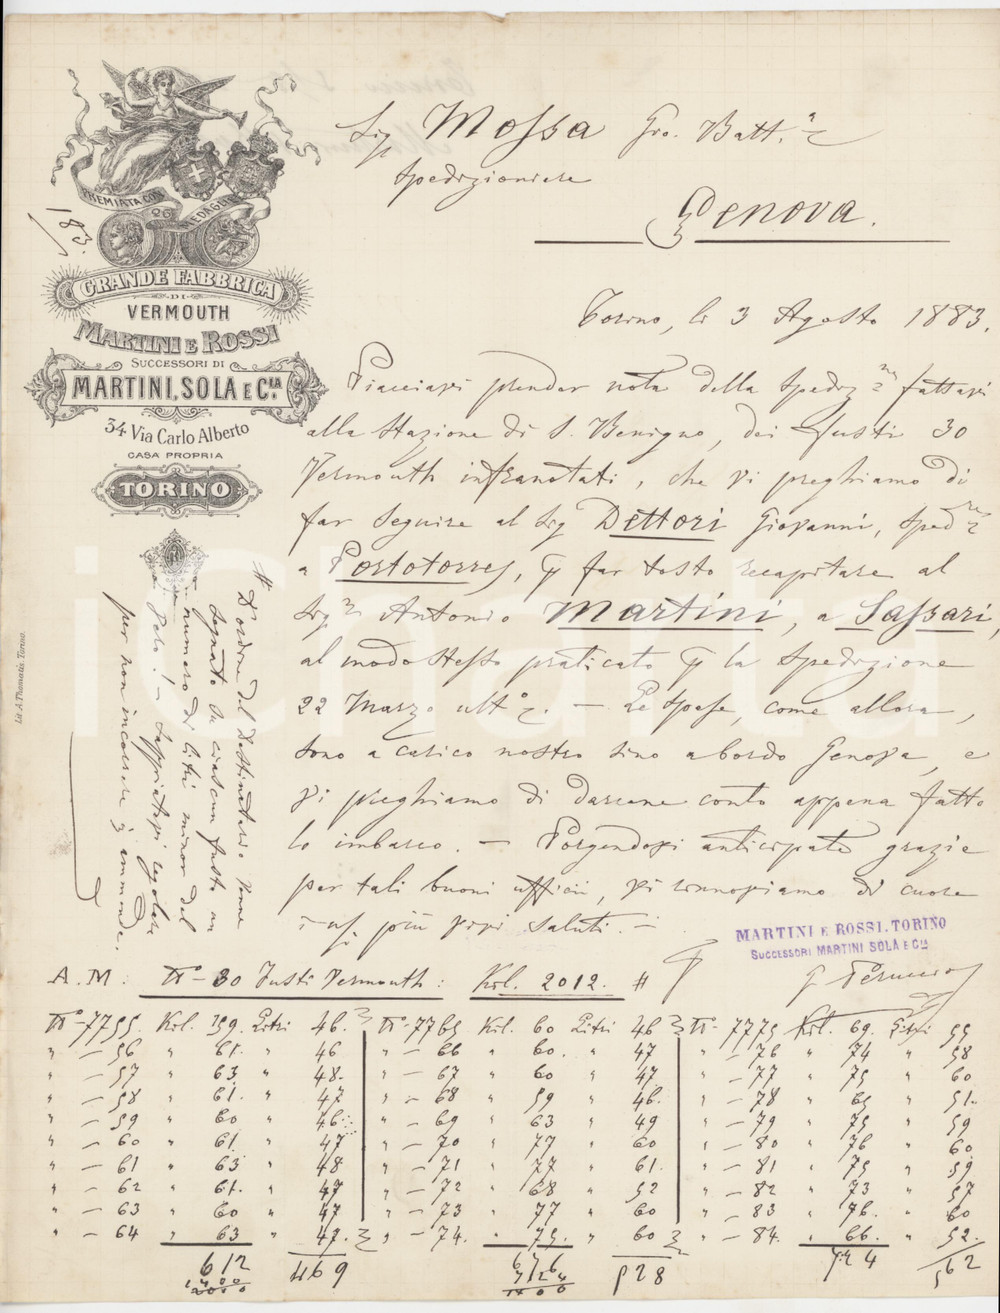 PREMIATA CON 26 MEDAGLIE
183.
GRANDE FABBRICA
DI
VERMOUTH
MARTINI E ROSSI
SUCCESSORI DI
MARTINI, SOLA E CIA.
34 Via Carlo Alberto
CASA PROPRIA
TORINO
Lit. A. Thomatis. Torino.
Sig Mossa Gio. Batt.a
Spedizioniere
Genova.
Torino, li 3 Agosto 1883.
Piacciavi prender nota della spediz.ne fattavi
alla Stazione di S. Benigno, dei fusti 30
Vermouth infranotati, che vi preghiamo di
far seguire al Sig Dettori Giovanni, Sped.re
a Portotorres, p far tosto recapitare al
Sig.r Antonio Martini, a Sassari,
al modo stesso praticato p la spedizione
22 Marzo ult.o. — Le spese, come allora,
sono a carico nostro sino a bordo Genova, e
vi preghiamo di darcene conto appena fatto
lo imbarco. — Porgendovi anticipate grazie
per tali buoni ufficii, vi rinnoviamo di cuore
i ns. più vivi saluti. —
MARTINI E ROSSI. TORINO
SUCCESSORI MARTINI SOLA E CIA
# D'ordine del Destinatario venne
segnato su ciascun fusto un
numero di litri minor del
vero! — Sappiatevi regolare
per non incorrere in ammende.
A.M: No - 30 Fusti Vermouth: Kil. 2012. #
No - 7755. Kil. 59. Litri 46. No - 7765 Kil. 60 Litri 46 No - 7775 Kil. 69. Litri 55
" — 56 " 61. " 46 " — 66 " 60. " 47 " — 76 " 74 " 58
" — 57 " 63 " 48. " — 67 " 60 " 47 " — 77 " 75 " 60
" — 58 " 61. " 47 " — 68 " 59 " 46. " — 78 " 65 " 51.
" — 59 " 60 " 46 " — 69 " 63 " 49 " — 79 " 75 " 59
" — 60 " 61. " 47 " — 70 " 77 " 60 " — 80 " 76 " 60
" — 61 " 63 " 48 " — 71 " 77 " 61. " — 81 " 75 " 59
" — 62 " 61. " 47 " — 72 " 68 " 52 " — 82 " 73 " 57
" — 63 " 60 " 47 " — 73 " 77 " 60 " — 83 " 76. " 60
" — 64 " 63 " 47. " — 74. " 75. " 60 " — 84. " 66. " 52.
612 469 676 528 724 562
iCharta